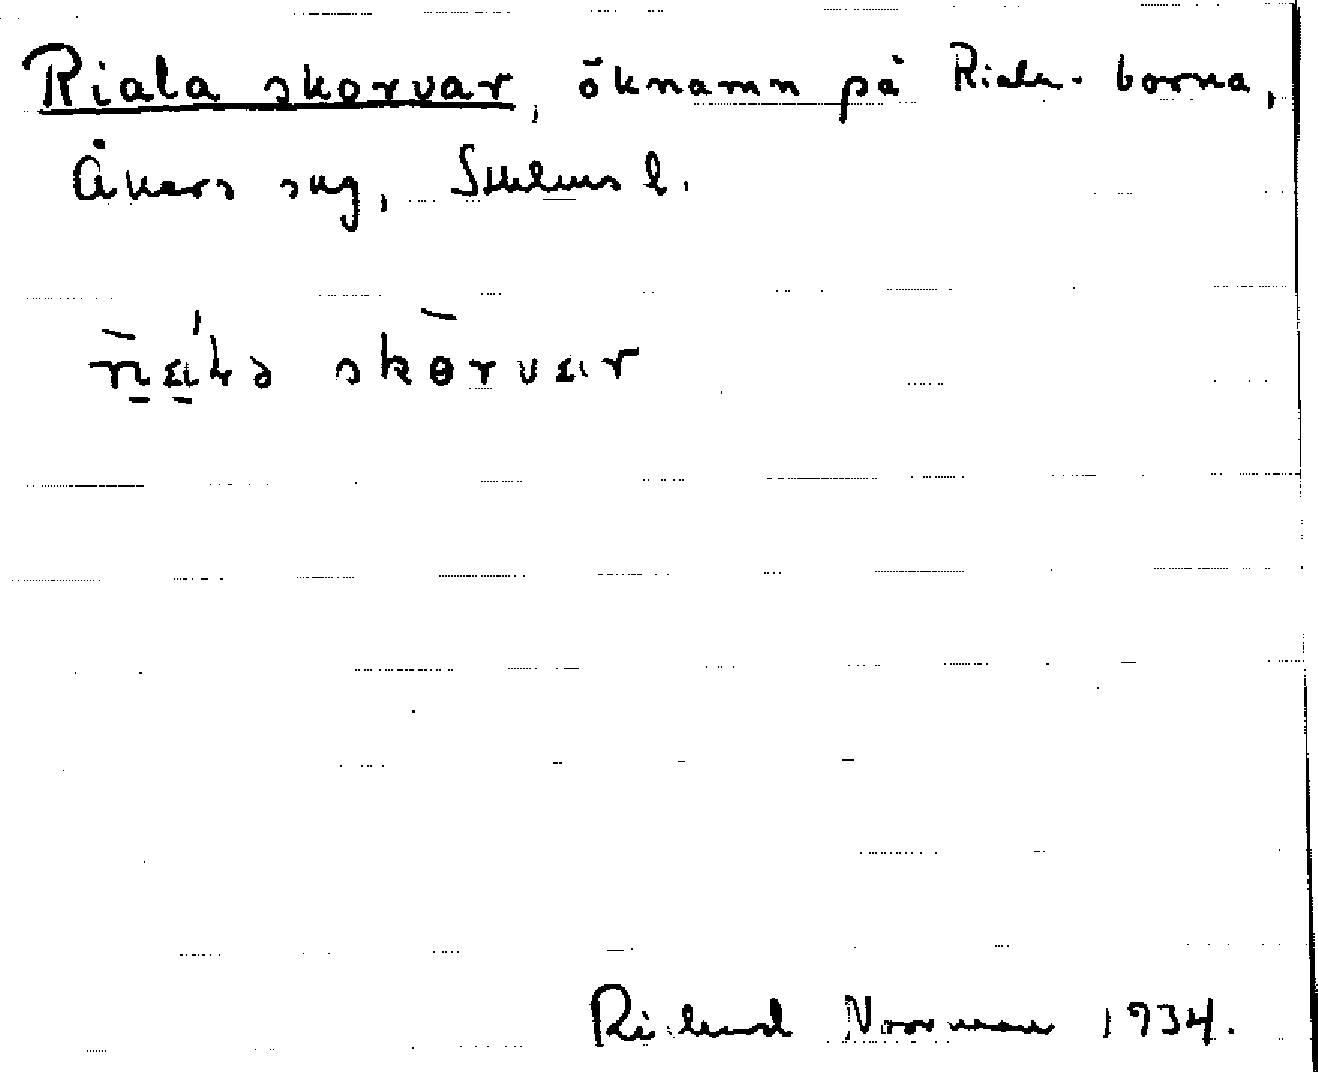 Riala skorvar, öknamn på Riala-borna,
Åkers skg, Sthlms l.
skɵrvar
Rikard Norrman 1934.